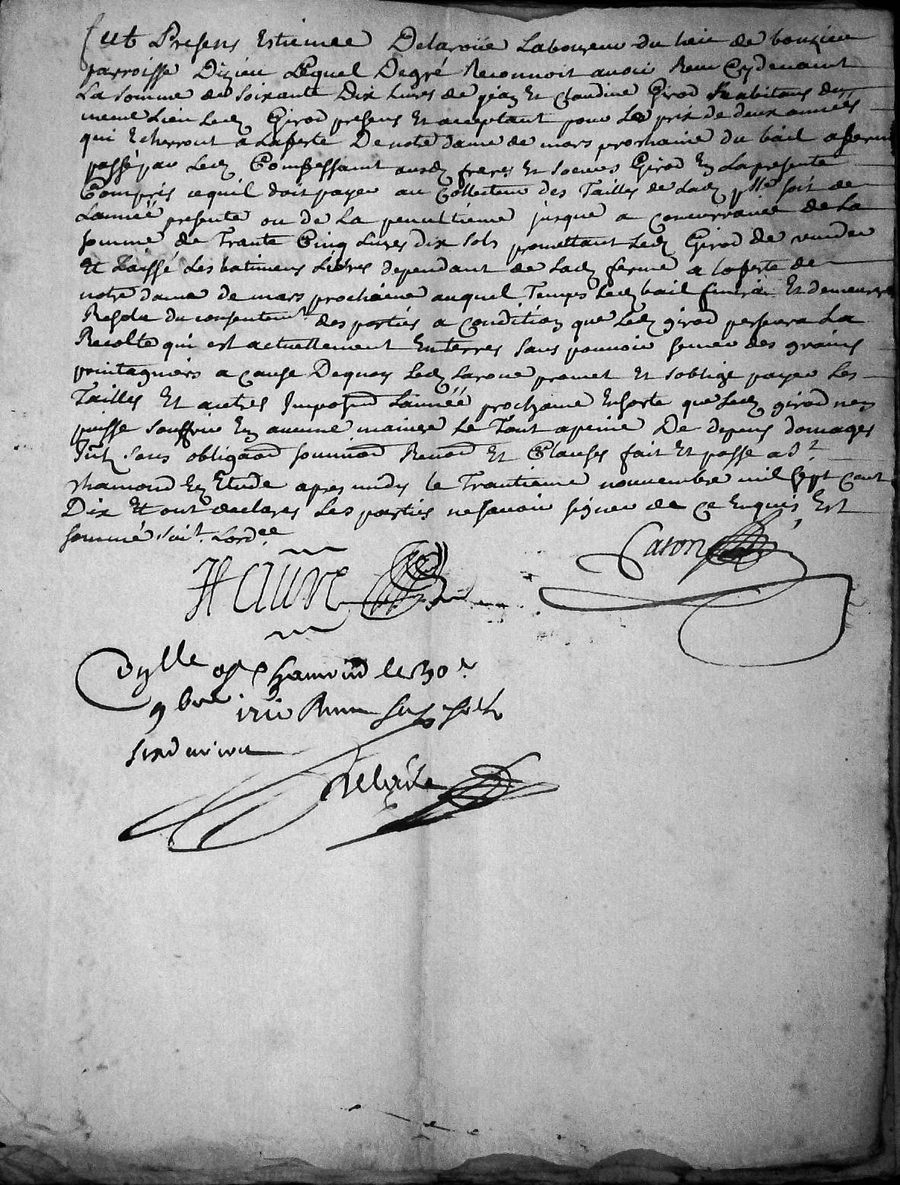 fut Presens Estienne Delaroüe Laboureur du lieu de bouzieu
parroisse Dizieu Lequel Degré Reconnoit avoir Receu Cydevant
La somme de soixante Dix Livres de jean Et Claudine Girod habitans du
mesme Lieu Led Girod presens Et acceptant pour Le prix de deux années
qui Echerront a Lafeste De notre dame de mars prochaine du bail afferme
passé par Led Confessant ausd freres Et soeures Girod En La presente
Compris cequil doit payer au Collecteur des Tailles de Lad plle soit de
Lannéé presente ou de La penultieme jusque a concurrance de La
somme de Trante Cinq Livres dix sols promettant Led Girod de rendre
Et Laissé Les batimens Libres dependant de Lad ferme a lafeste de
notre dame de mars prochaine auquel Temps Led bail finira Et demeurera
Resolu du consentemt des parties a condition que Led girod persevra La
Recolte qui est actuellement En terres sans pouvoir semer des grains
printagniers a cause Dequoy Led Laroue promet Et soblige payer Les
Tailles Et autres Imposons Lannéé prochaine Ensorte que Led girod nen
puisse souffrir En aucune maniere Le Tout a peine De depens domages
Intz sous obligaon soumison Renon Et Clauses fait Et passé a St
chamond En Etude apres midy le Trantieme novembre mil sept Cent
Dix Et ont declarés Les parties ne savoir signer de ce Enquis Est
sommé suivt Lordce
Caron
Cnlle a St Chamond le 30e
9bre 1710 Receu six sols